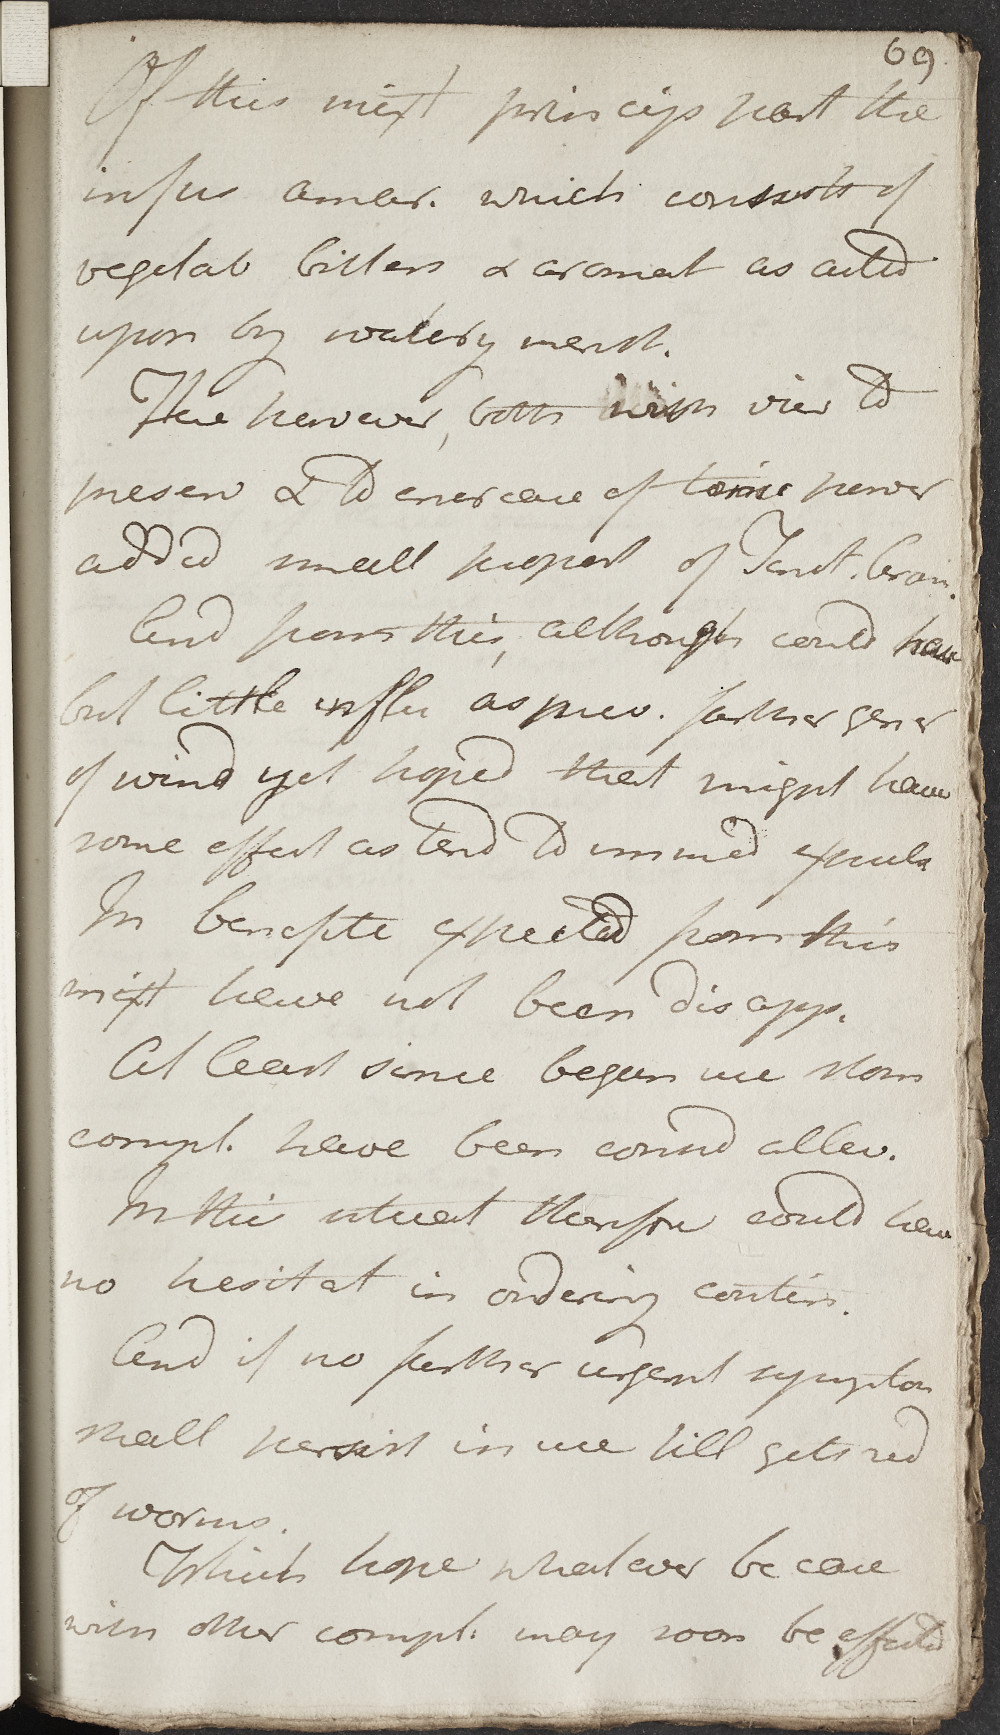 69
Of this mixt princip part the
infus amar. which consists of
vegetab bitters & aromat as acted
upon by watery menst.
Here however, both with view to
preserv & to encrease of tonic power
added small proport of Tinct. Cran.
And from this, although could have
but little influ as prev. further gener
of wind yet hoped that might have
some effect as tend to immed expuls
In benefite expected from this
mixt have not been disapp.
At least since began use stom
compl. have been consid allev.
In this situat therefore could have
no hesitat in ordering contin.
And if no further urgent symptom
shall persist in use till gets red
of worms.
Which hope whatever be case
with other compl. may soon be effected